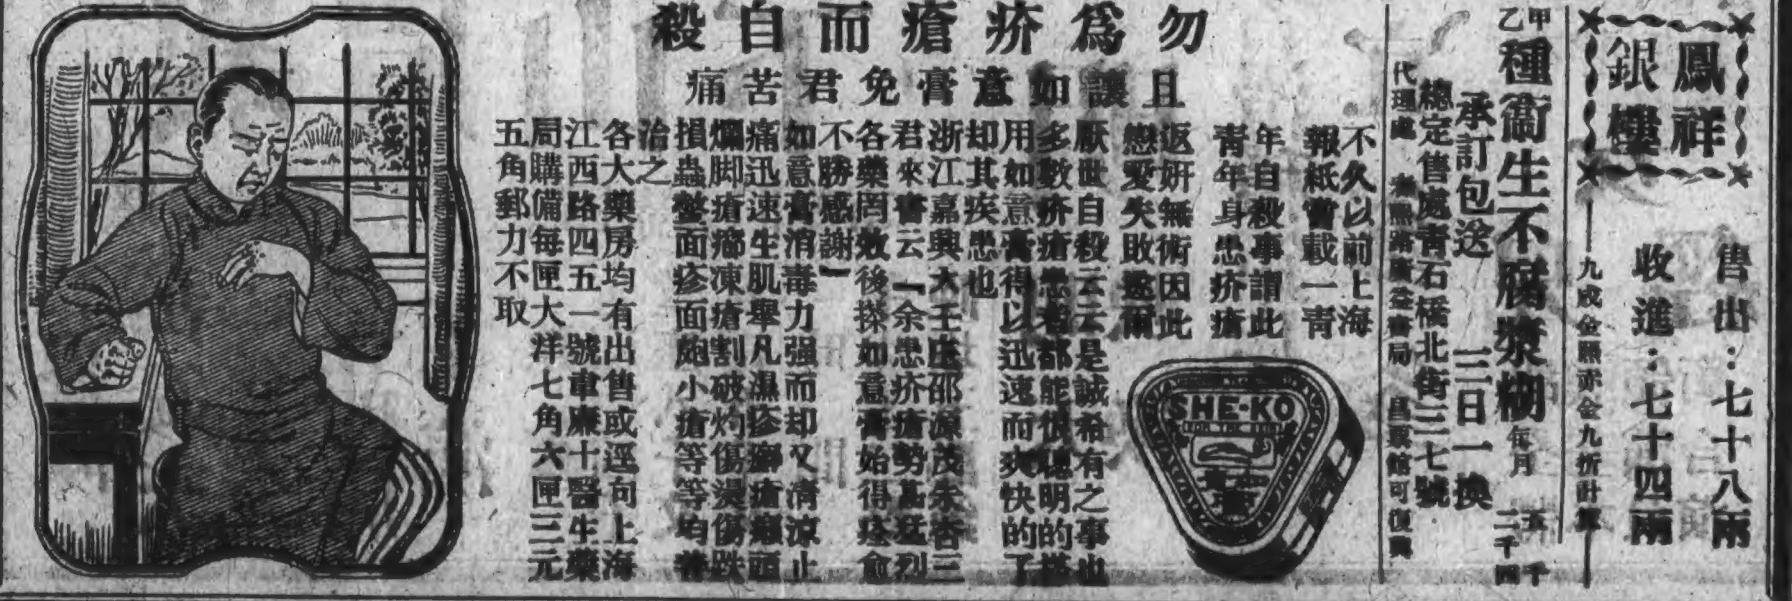 鳳祥
銀樓
售出：七十八兩
收進：七十四兩
九成金照赤金九折計算
甲乙種衞生不腐漿糊
每月
五千
二千四
承訂包送 三日一換
總定售處青石橋北街三十七號
代理處
勿爲疥瘡而自殺
且讓如意膏免君苦痛
不久以前上海
報紙嘗載一青
年自殺事謂此
青年身患疥瘡
返姸無術因此
戀愛失敗
厭世自殺云云是誠希有之事也
多數疥瘡患者都能很聰明的
用如意膏得以迅速而爽快的了
却其疾患也
浙江嘉興大王廟邵源茂朱杏三
君來書云「余患疥瘡勢甚猛烈
各藥罔效後搽如意膏始得痊愈
不勝感謝」
如意膏消毒力强而却又清凉止
痛迅速生肌舉凡濕疹癬瘡癩頭
爛脚瘡癤凍瘡割破灼傷燙傷跌
損蟲螫面疹面皰小瘡等等均善
治之
各大藥房均有出售或逕向上海
江西路四五一號韋廉士醫生藥
局購備每匣大洋七角六匣三元
五角郵力不取
SHE-KO
FOR THE SKIN